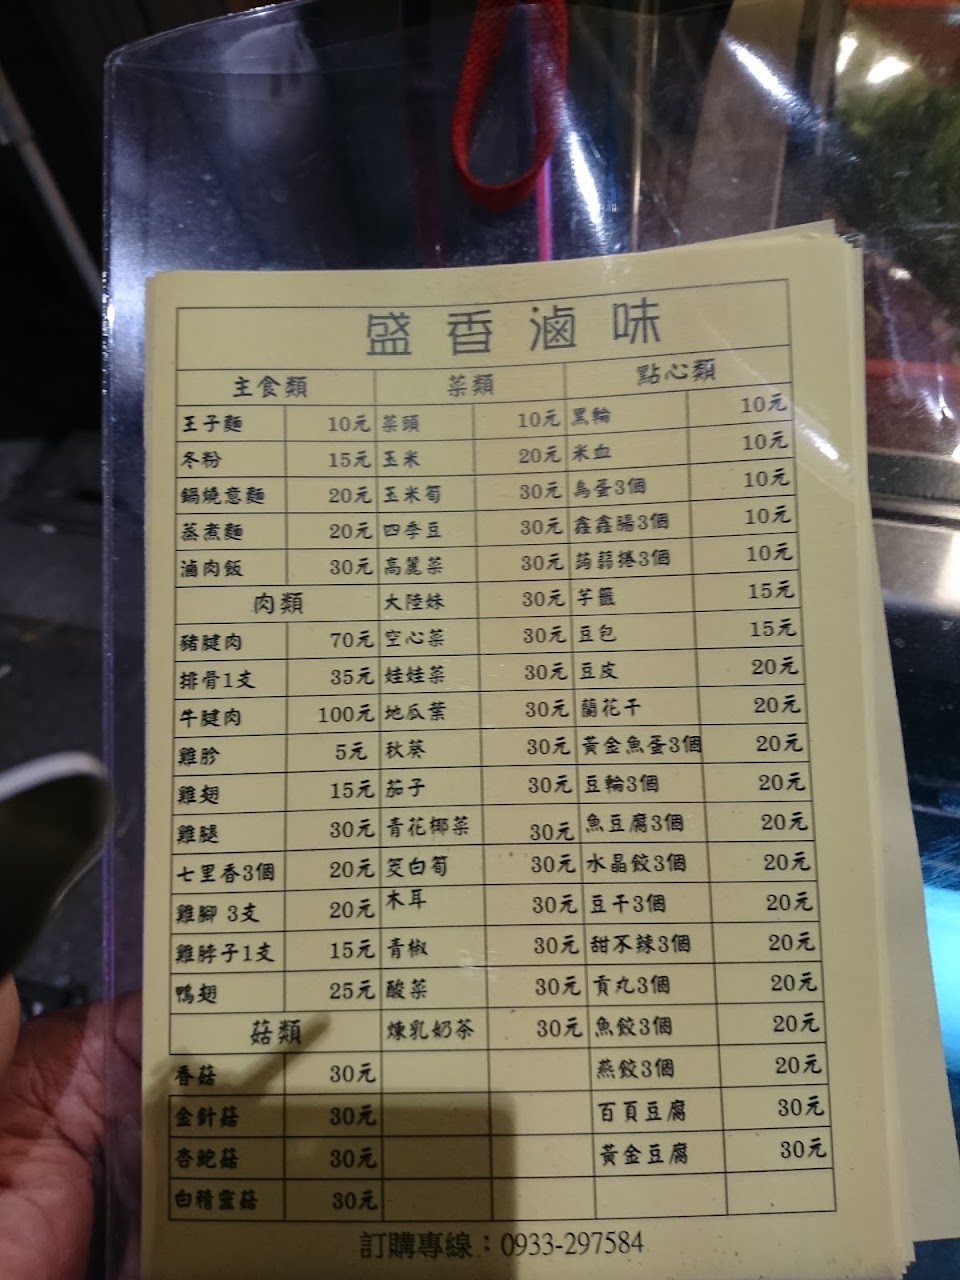 盛香滷味
主食類 菜類 點心類
王子麵 10元 菜頭 10元 黑輪 10元
冬粉 15元 玉米 20元 米血 10元
鍋燒意麵 20元 玉米筍 30元 鳥蛋3個 10元
蒸煮麵 20元 四季豆 30元 鑫鑫腸3個 10元
滷肉飯 30元 高麗菜 30元 蒟蒻捲3個 10元
肉類 大陸妹 30元 芋籤 15元
豬腱肉 70元 空心菜 30元 豆包 15元
排骨1支 35元 娃娃菜 30元 豆皮 20元
牛腱肉 100元 地瓜葉 30元 蘭花干 20元
雞胗 5元 秋葵 30元 黃金魚蛋3個 20元
雞翅 15元 茄子 30元 豆輪3個 20元
雞腿 30元 青花椰菜 30元 魚豆腐3個 20元
七里香3個 20元 筊白筍 30元 水晶餃3個 20元
雞腳 3支 20元 木耳 30元 豆干3個 20元
雞脖子1支 15元 青椒 30元 甜不辣3個 20元
鴨翅 25元 酸菜 30元 貢丸3個 20元
菇類 煉乳奶茶 30元 魚餃3個 20元
香菇 30元 燕餃3個 20元
金針菇 30元 百頁豆腐 30元
杏鮑菇 30元 黃金豆腐 30元
白精靈菇 30元
訂購專線：0933-297584